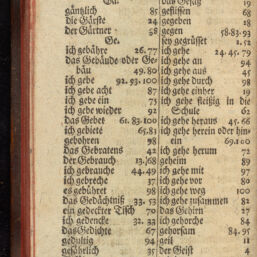 Ga.
gäntzlich 85
die Gärste 24
der Gärtner 58
Ge.
ich gebähre 26. 77
das Gebäude oder Ge-
bäu 49. 80
ich gebe 92. 93. 100
ich gebe acht 87
ich gebe ein 73
ich gebe wieder 93
das Gebet 61. 83. 100
ich gebiete 65. 81
gebohren 98
das Gebratens 42
der Gebrauch 13. 68
ich gebrauche 44. 49
ich gebreche 37
es gebühret 98
das Gedächtniß 33. 53
ein gedeckter Tisch 70
ich gedencke 32. 33
das Gedichte 67
gedultig 94
gefährlich 35
das Gesätz 19
geflissen 68
gegeben 18
gegen 58. 83. 93
sey gegrüsset 1. 52
ich gehe 24. 45. 79
ich gehe an 94
ich gehe aus 45
ich gehe durch 98
ich gehe einher 19
ich gehe fleißig in die
Schule 62
ich gehe heraus 45. 66
ich gehe herein oder hin-
ein 69. 100
ich gehe herum 72
geheim 89
ich gehe mit 97
ich gehe vor 80
ich gehe weg 100
ich gehe zusammen 82
das Gehirn 27
ich gehorche 84
gehorsam 84. 95
geil 11
der Geist 4